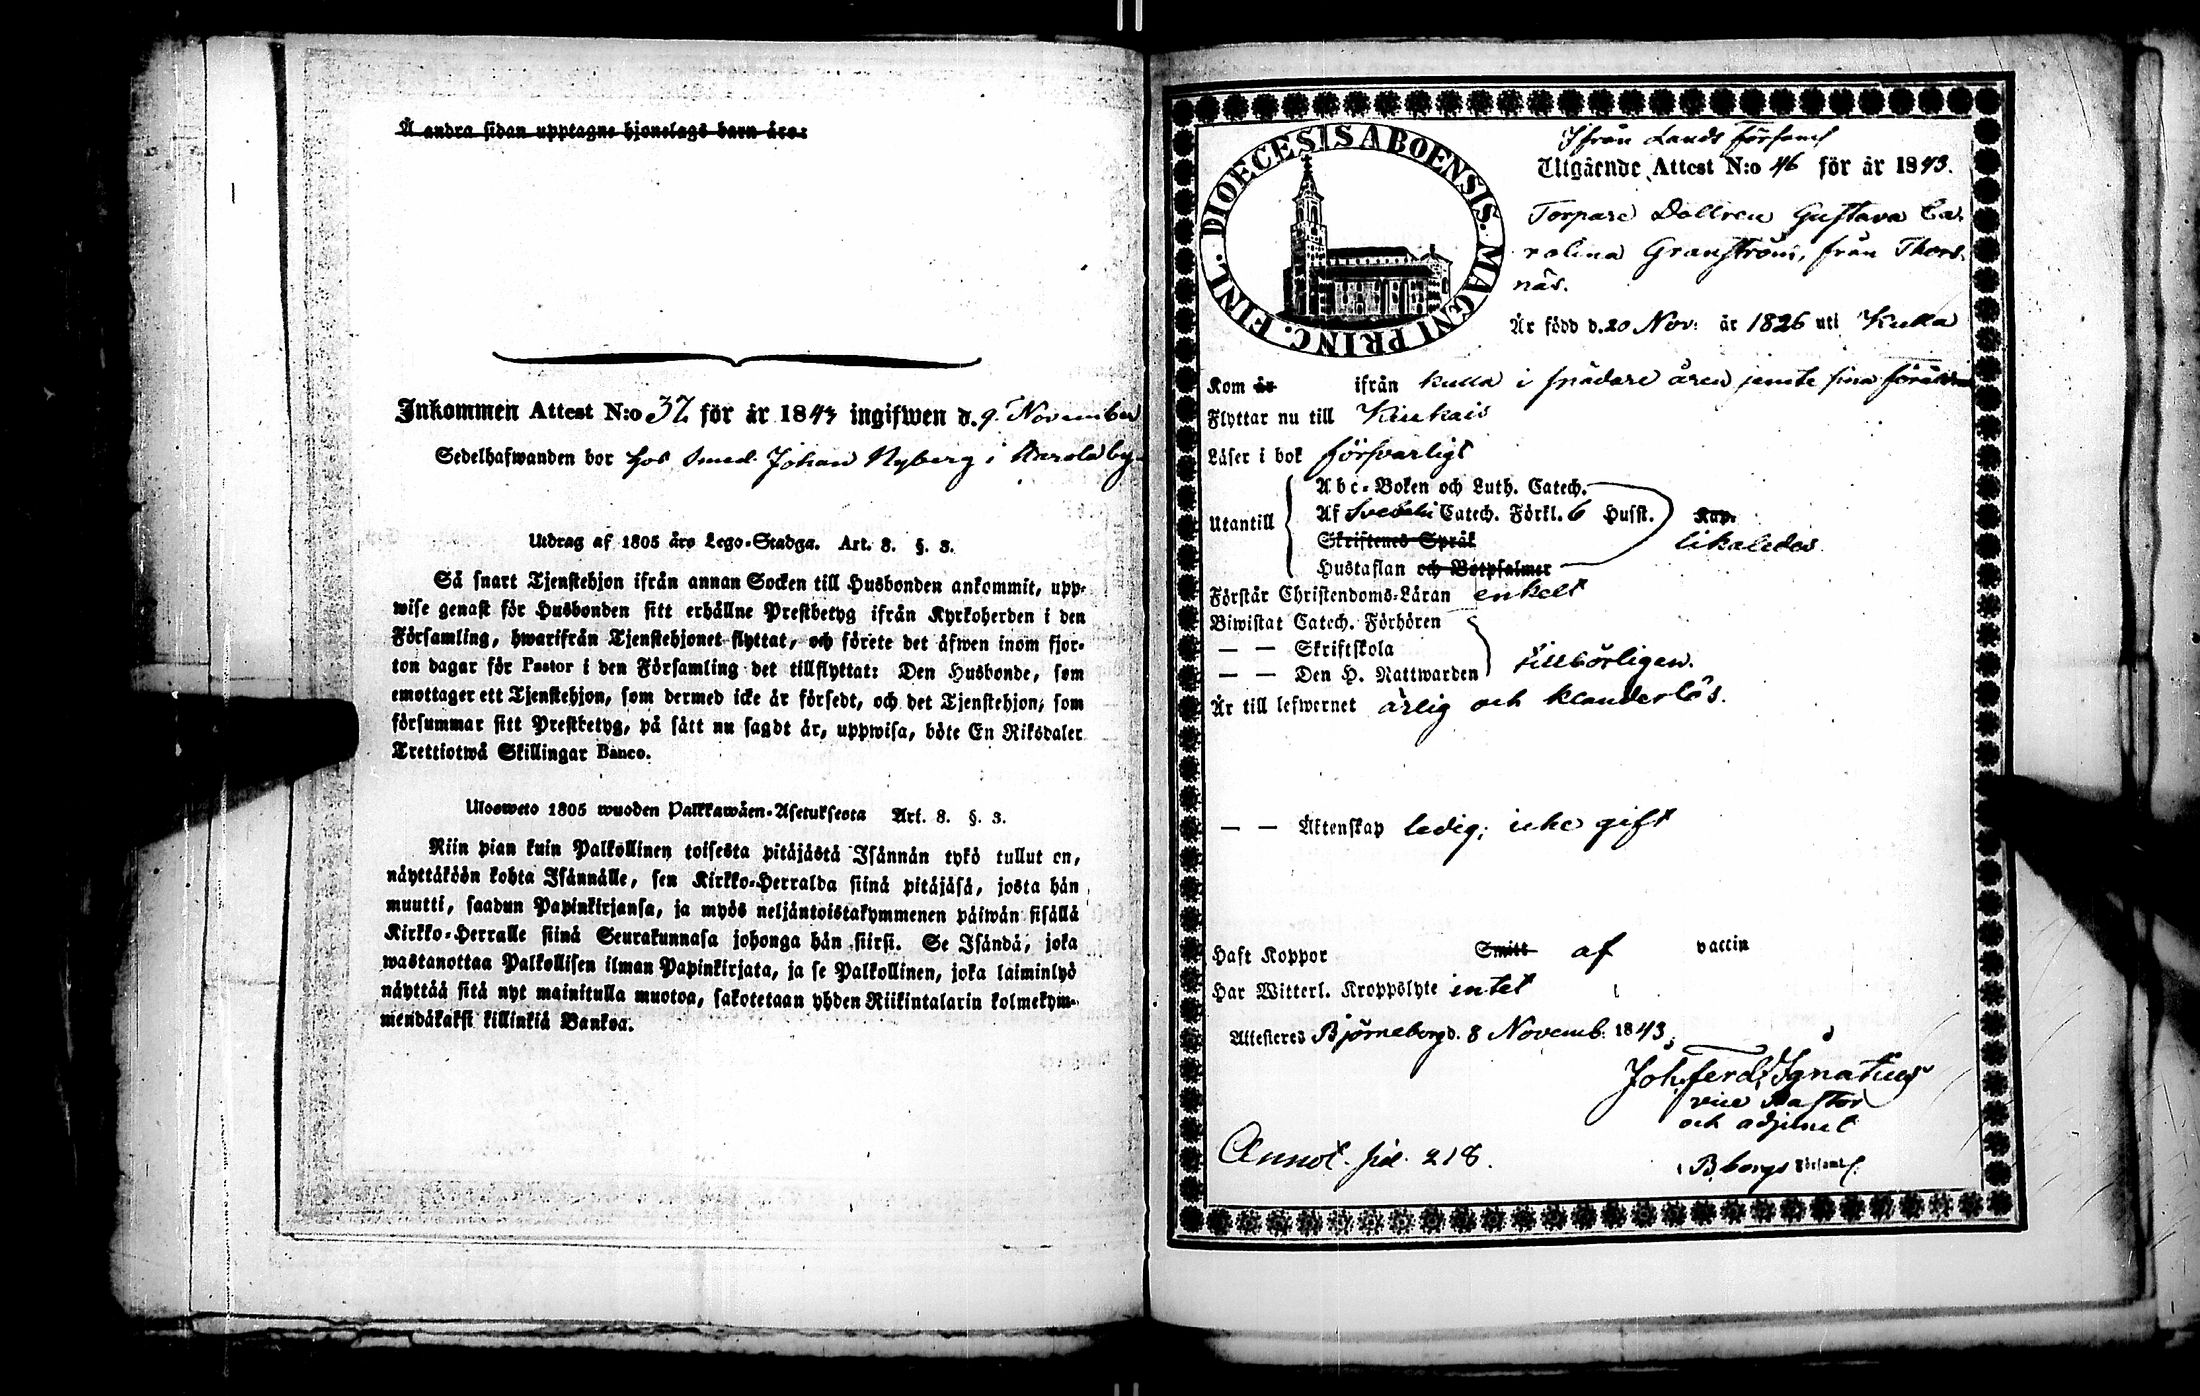 Å andra sidan upptagne hjonelags barn äro:
Inkommen Attest N:o 37 för år 1843 ingifwen d. 9 November
Sedelhafwanden bor hos Smed. Johan Nyberg i by
Utdrag af 1805 års Lego-Stadga. Art. 8. §. 3.
Så snart Tjenstehjon ifrån annan Socken till Husbonden ankommit, upp-
wise genast för Husbonden sitt erhållne Prestbetyg ifrån Kyrkoherden i den
Församling, hwarifrån Tjenstehjonet flyttat, och förete det äfwen inom fjor-
ton dagar för Pastor i den Församling det tillflyttat: Den Husbonde, som
emottager ett Tjenstehjon, som dermed icke är försedt, och det Tjenstehjon, som
försummar sitt Prestbetyg, på sätt nu sagdt är, uppwisa, böte En Riksdaler
Trettiotwå Skillingar Banco.
Ulosweto 1805 wuoden Palkkawäen-Asetuksesta Art. 8. §. 3.
Niin pian kuin Palkollinen toisesta pitäjästä Isännän tykö tullut on,
näyttäköön kohta Isännälle, sen Kirkko-Herralda siinä pitäjäsä, josta hän
muutti, saadun Papinkirjansa, ja myös neljäntoistakymmenen päiwän sisällä
Kirkko-Herralle siinä Seurakunnasa johonga hän siirsi. Se Isändä, joka
wastanottaa Palkollisen ilman Papinkirjata, ja se Palkollinen, joka laiminlyö
näyttää sitä nyt mainitulla muotoa, sakotetaan yhden Riikintalarin kolmekym-
mendäkaksi killinkiä Bankoa.
DIOECESIS ABOENSIS. MAGNI PRINC. FINL.
Ifrån Lands Församl
Utgående Attest N:o 46 för år 1843.
Torpare Dottren Gustava Ca-
rolina Granström, från Thors-
näs.
Är född d. 20 Nov: år 1826 uti Kulla
Kom år ifrån Kulla i spädare åren jemte sina föräldrar
Flyttar nu till
Läser i bok försvarligt
Utantill
Abc-Boken och Luth. Catech.
Af Svebeli Catech. Förkl. 6 Hufst. Kap.
Skriftenes Språk
likaledes
Hustaflan och Botpsalmer
Förstår Christendoms-Läran enkelt
Biwistat Catech. Förhören
— — Skriftskola
— — Den H. Nattwarden tillbörligen.
Är till lefwernet ärlig och klanderlös.
— — Äktenskap ledig; icke gift
Haft Koppor Smitt af vaccin
Har Witterl. Kroppslyte intet
Attesteres Björneborg d. 8 Novemb. 1843.
Joh. Ferd. Ignatius
vice Pastor
och adjunct
i B.borgs Församl.
Annot. sid. 218.